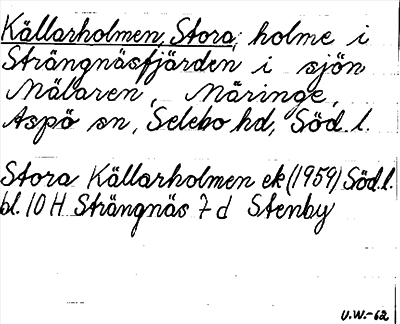 Källarholmen, Stora, holme i
Strängnäsfjärden i sjön
Mälaren, Märinge,
Aspö sn, Selebo hd, Söd. l.
Stora Källarholmen ek (1959) Söd. l.
bl. 10 H Strängnäs 7 d Stenby
U.W.-62